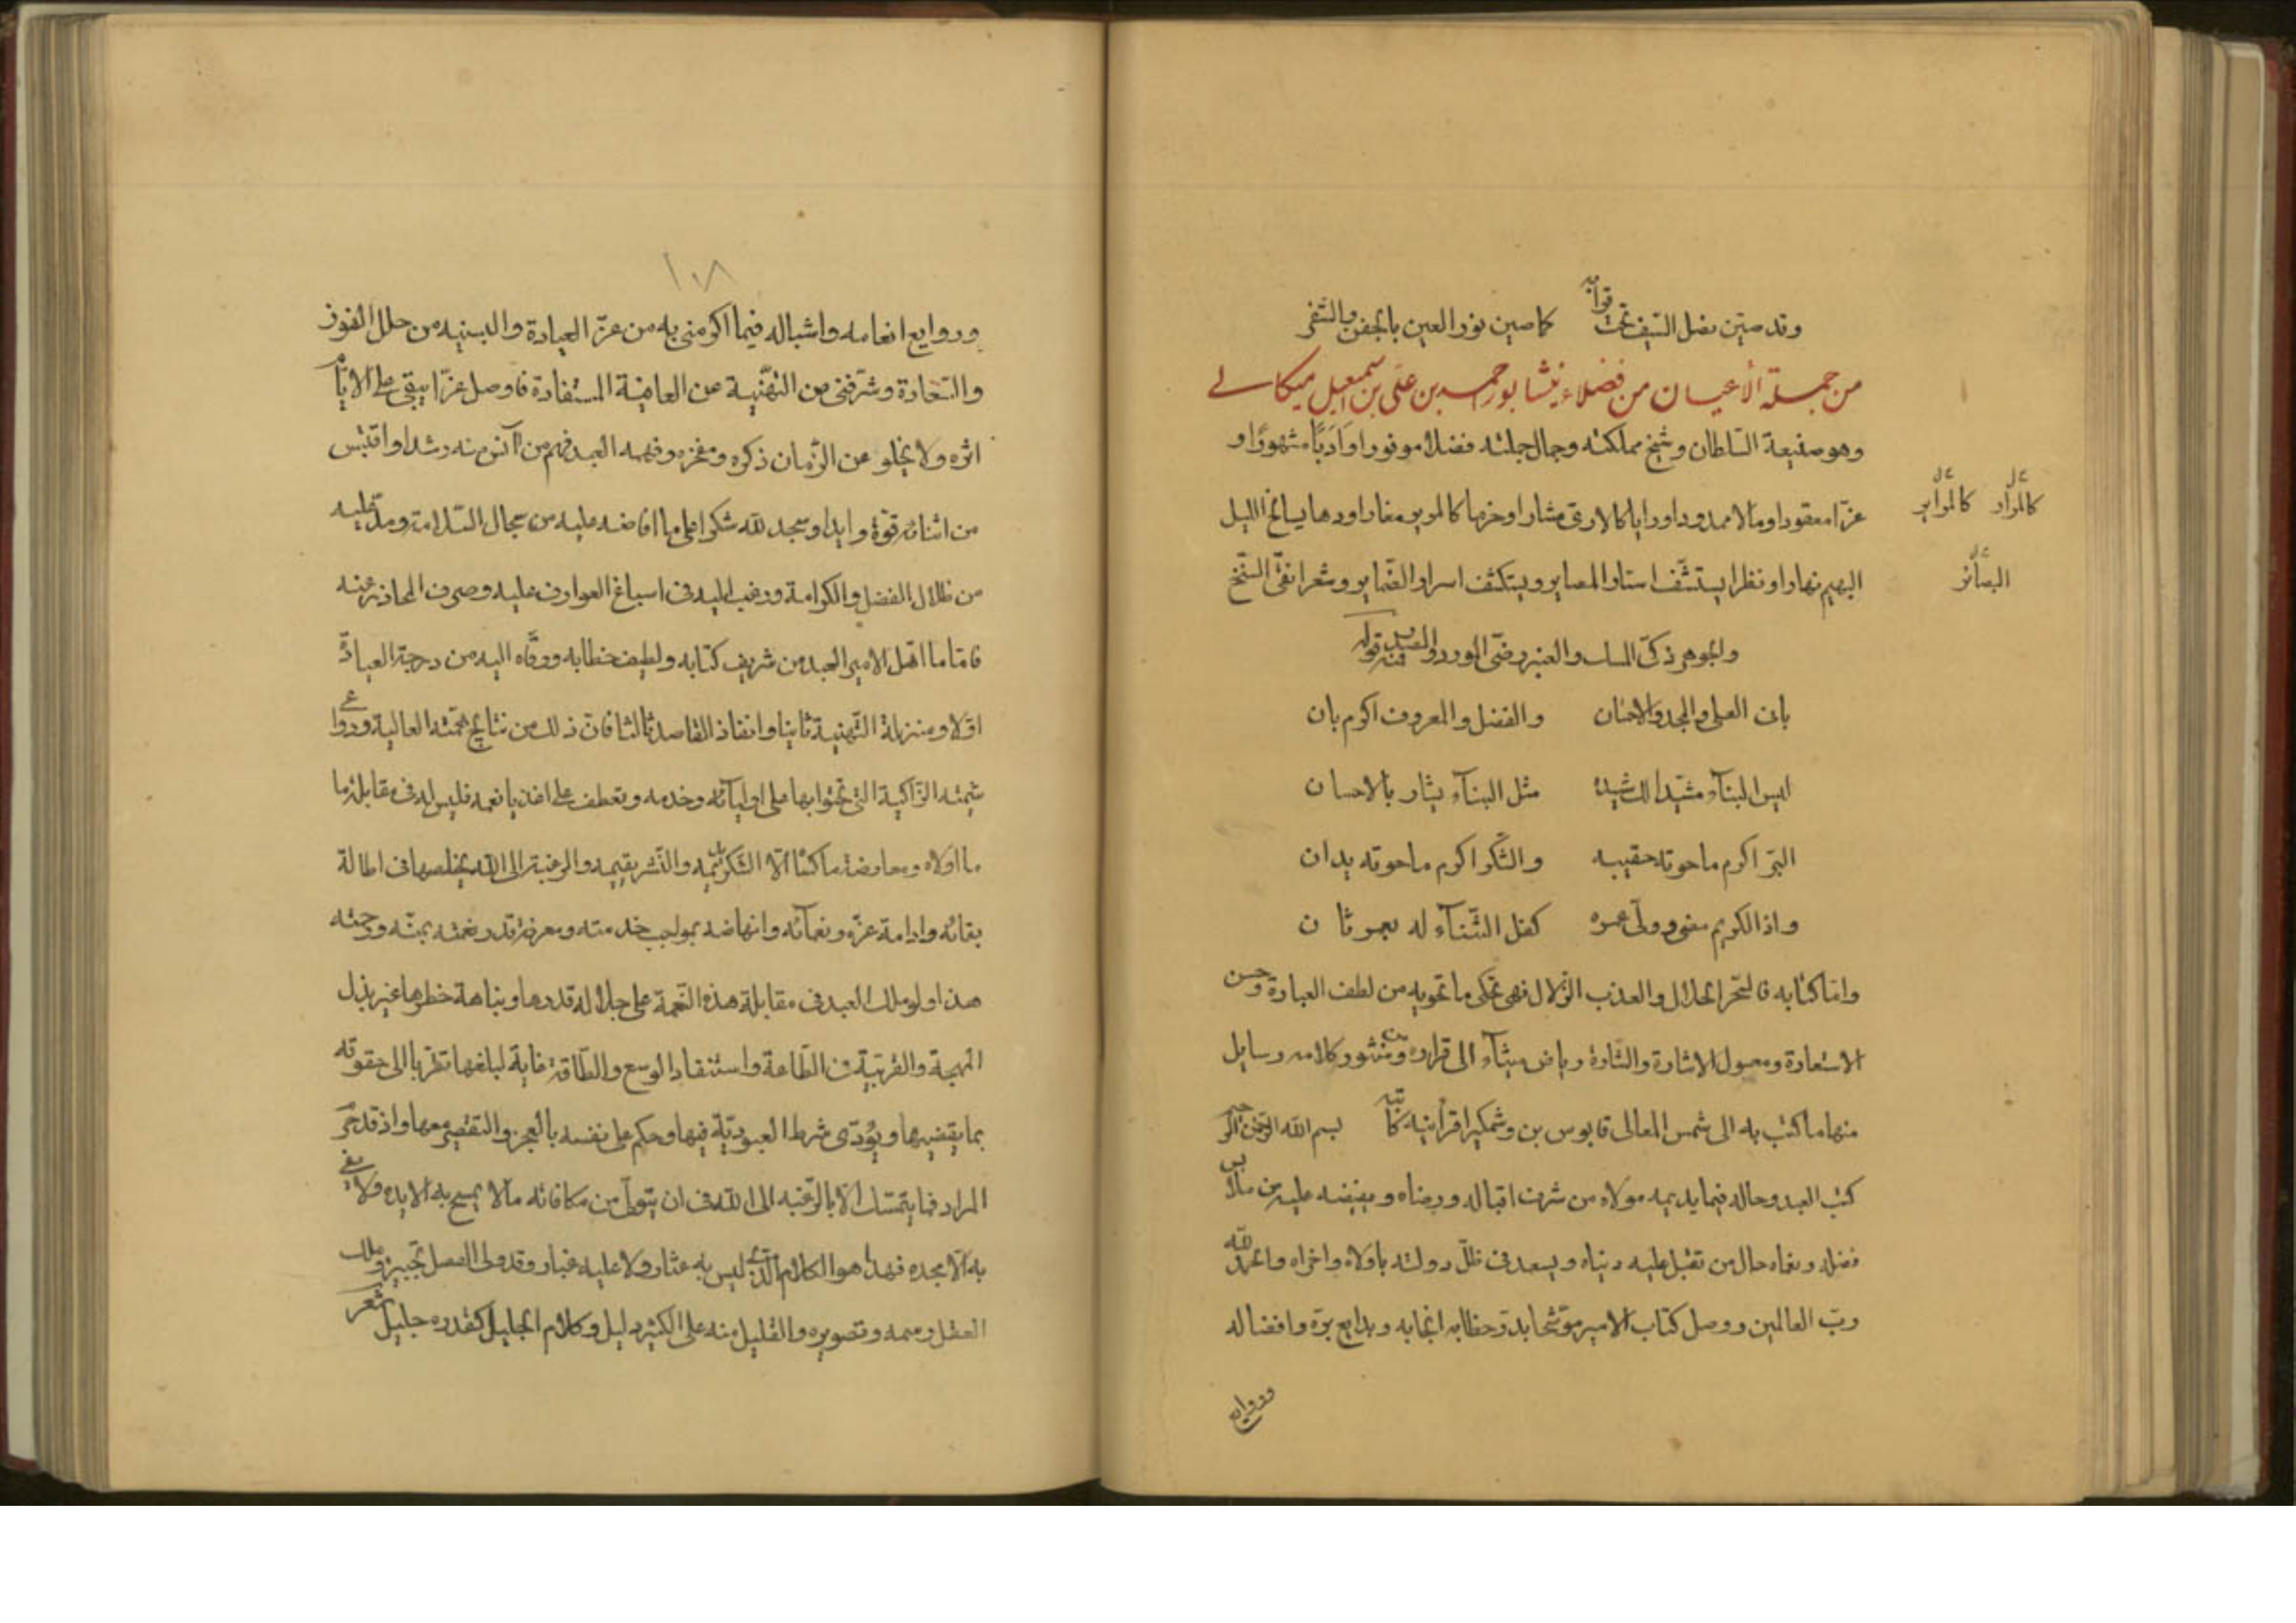 وقد صين نصل السيف تحت قرابه كما صين نور العين بالجفن والشفر
من جملة الأعيان من فضلاء نيشابور احمد بن علي بن اسمعيل ميكالي
وهو صنيعة السلطان وشيخ مملكته وجمال جملته فضلا موفورا وادبا مشهورا و
عزا معقودا ومالا ممدودا ورايا كالارى مشارا وحزما كالمرير مغارا ودهايسالخ الليل
البهيم نهارا ونظرا يستشف استار المصاير ويستكشف اسرار الضماير وشعرا نقى السنخ
والجوهر ذكى المسك والعنبر رضى المورد والمصدر فمنه قوله
بان العلى والمجد والاحسان والفضل والمعروف اكرم بان
ليس البناء مشيدا لك شيده مثل البناء يشاد بالاحسان
البر اكرم ما حوته حقيبه والشكر اكرم ما حوته يدان
واذا الكريم مضى وولى عمره كفل الثناء له بعمر ثان
واما كتابه فالسحر الحلال والعذب الزلال فهى تحكى ما تحويه من لطف العبارة وحسن
الاستعارة ومعسول الاشارة والشارة رياض ميثاء الى قراره ومن منثور كلامه رسايل
منها ما كتب به الى شمس المعالى قابوس بن وشمكير اقرأنيه كاتبه بسم الله الرحمن الرحيم
كتب العبد وحاله فيما يديمه مولاه من شرف اقباله ورضاه ويفيضه عليه من ملابس
فضله ونعماه حال من تقبل عليه دنياه ويسعد فى ظل دولته باولاه واخراه والحمد لله
رب العالمين ووصل كتاب الامير موشحا بدرر خطابه ايجابه وبدايع بره وافضاله
وروايع
كالمراد كالمراير
البصائر
١٠٨
وروايع انعامه واشباله فيما اكرمنى به من عز العيادة والبسنيه من حلل الفوز
والسعادة وشرفنى من التهنية عن العافية المستفادة فاوصل عزا يبقى على الايام
اثره ولا يخلو عن الزمان ذكره ومفخره وفهمه العبد فهم من آنس منه رشدا واقتبس
من اثنائه قوة وايدا وسجد لله شكرا على ما افاضه عليه من سجال السلامة ومد عليه
من ظلال الفضل والكرامة ورغب اليه فى اسباغ العوارف عليه وصرف المحاذير عنه
فاما ما اهل الامير العبد من شريف كتابه ولطيف خطابه ورقاه اليه من درجة العيادة
اولا ومنزلة التهنية ثانيا وانفاذ القاصد ثالثا فان ذلك من نتايج همته العالية ودواعى
شيمته الزاكية التى تحنو بها على اوليائه وخدمه وتعطف على اغذياء نعمه فليس له فى مقابلة ما
ما اولاه ومعارضة ما كساه الا الشكر يديمه والنشر يقيمه والرغبة الى الله يخلصها فى اطالة
بقائه وادامة عزه ونعمائه وانهاضه بمواجب خدمته ومعرفة قدر نعمته بمنه ورحمته
هذا ولو ملك العبد فى مقابلة هذه النعمة على جلالة قدرها ونباهة خطرها غير بذل
المهجة والقربة فى الطاعة واستنفاد الوسع والطاقة غاية لبلغها تقربا الى حقوقه
بما يقضيها ويؤدى شرط العبودية فيها وحكم على نفسه بالعجز والتقصير معها واذ قد حرم
المراد فما يتمسك الا بالرغبة الى الله فى ان يتولى من مكافاته ما لا يسمح به الا يده ولا يفى
به الا مجده فهذا هو الكلام الذى ليس به عثار ولا عليه غبار وقد ولى الفصل تحبيره وملك
العقل رسمه وتصويره والقليل منه على الكثير دليل وكلام الجليل كقدره جليل شعر